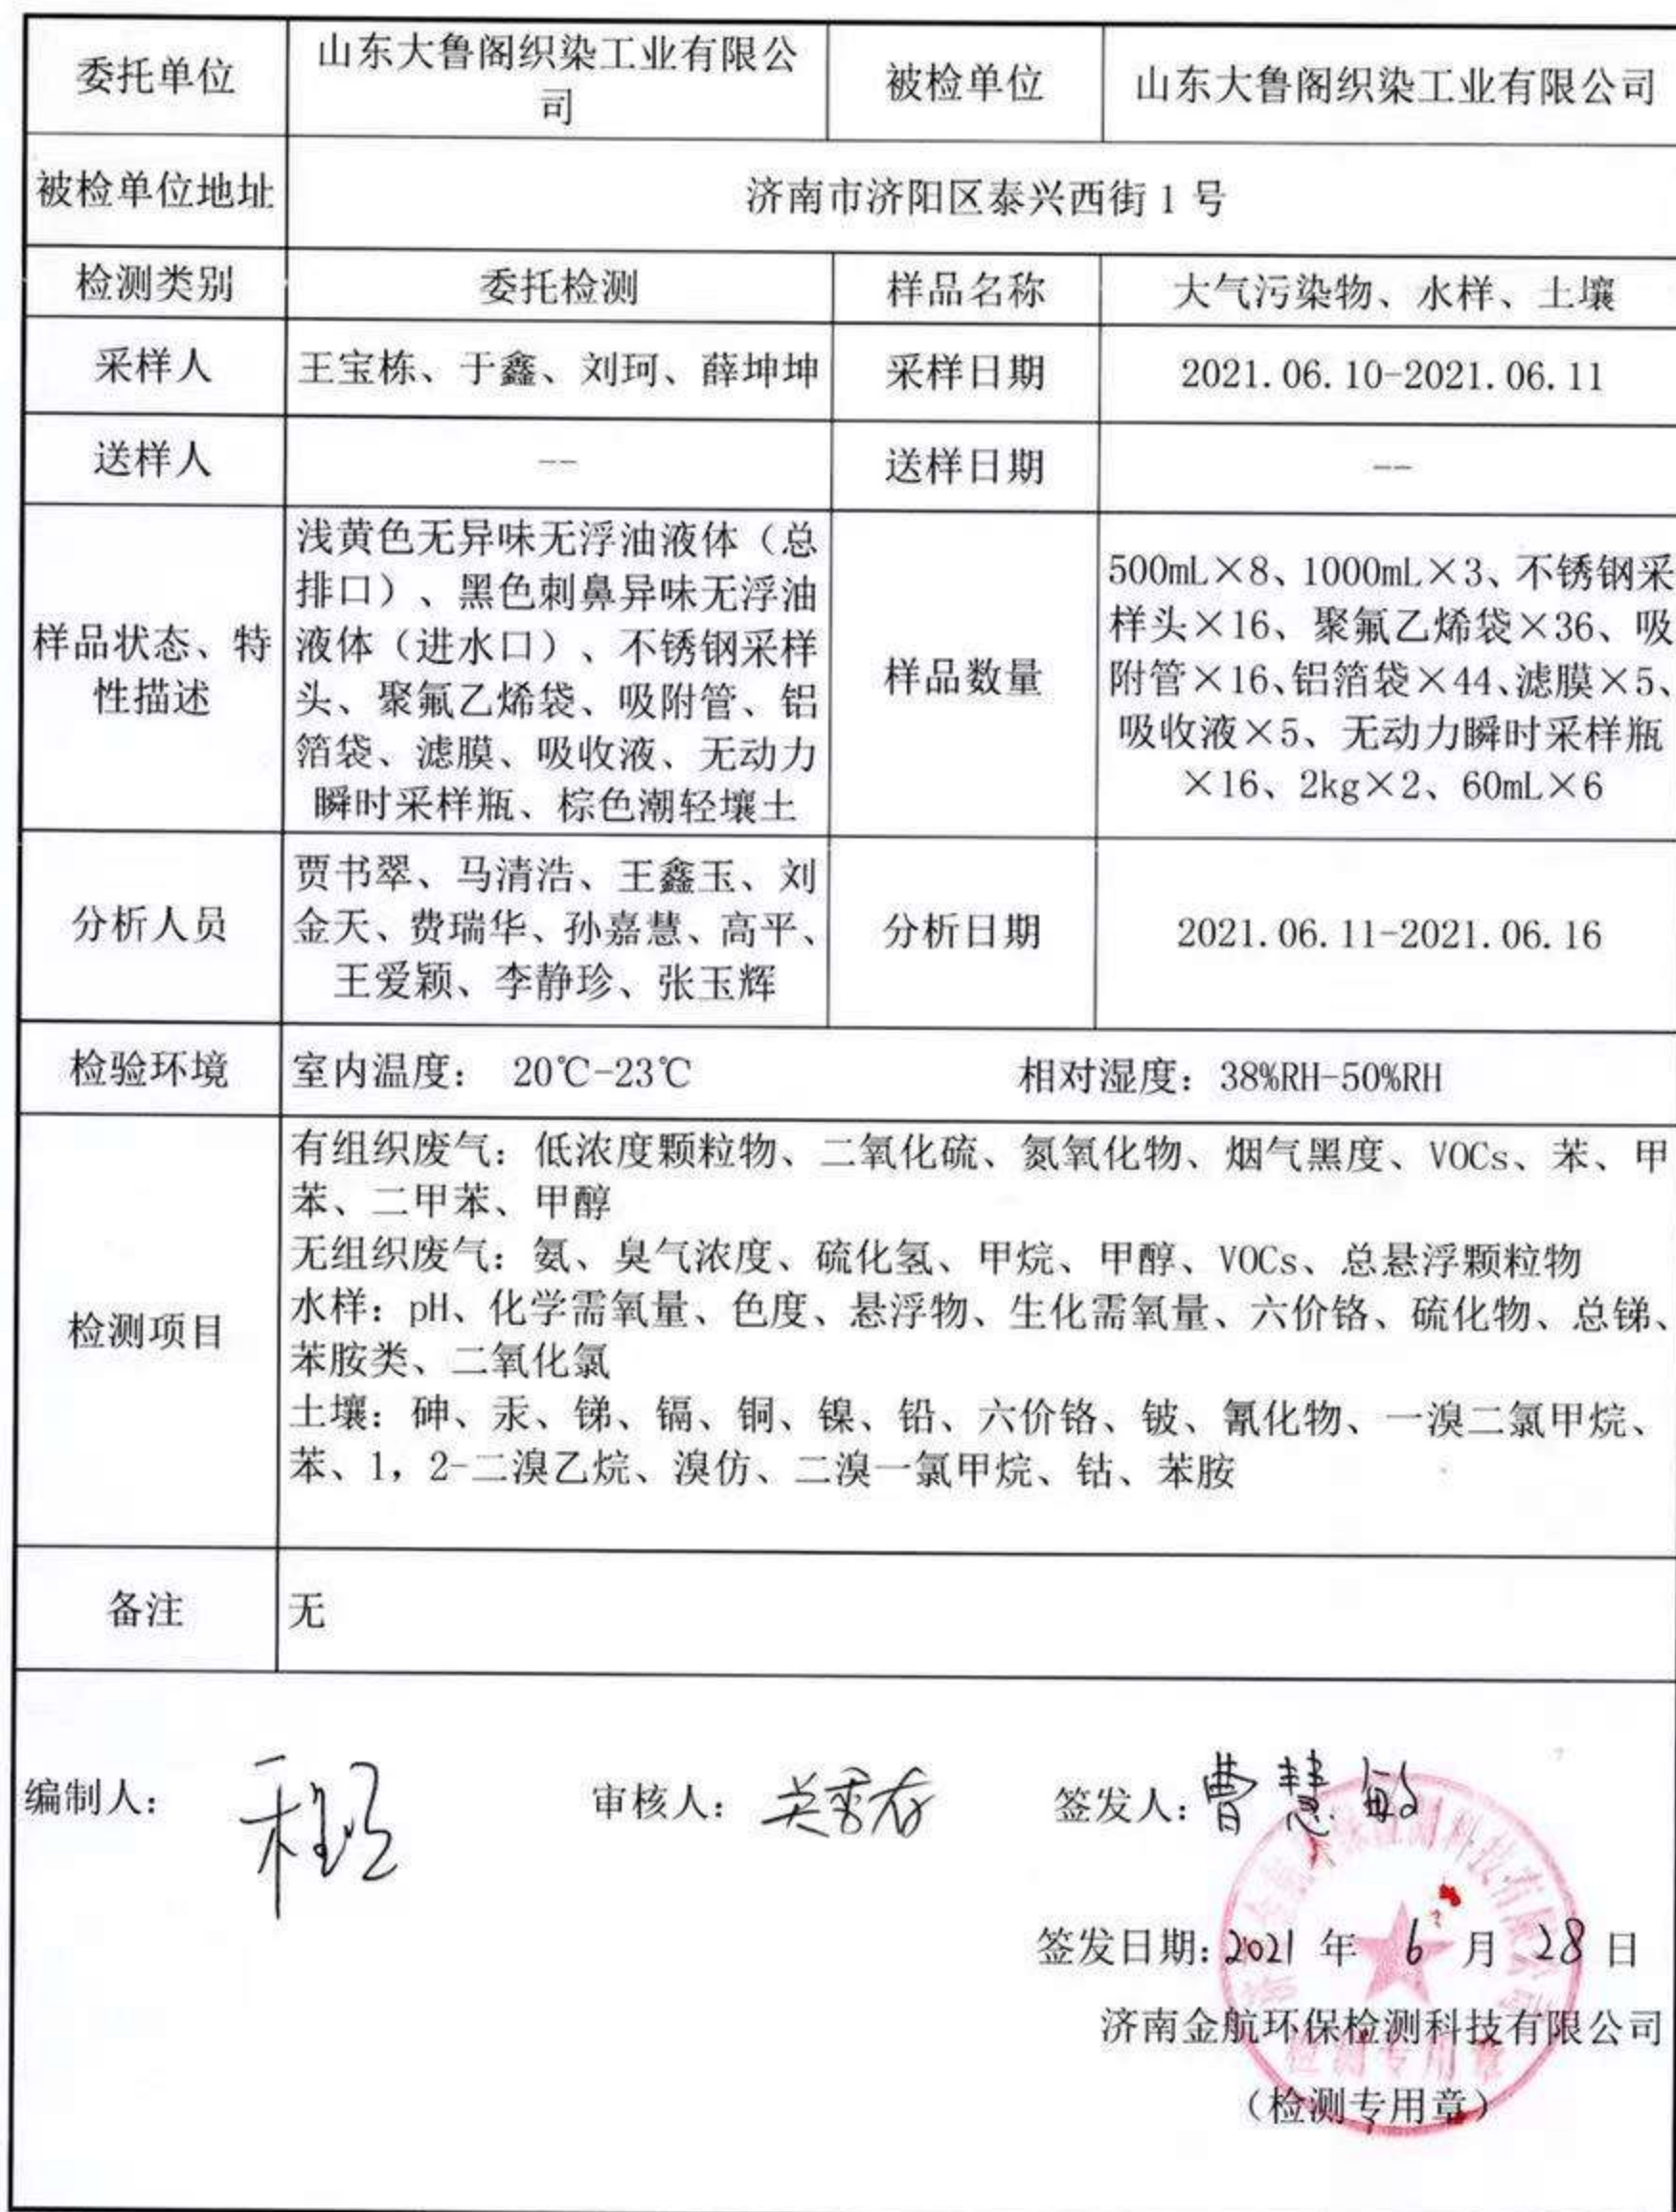 委托单位
山东大鲁阁织染工业有限公
司
被检单位
山东大鲁阁织染工业有限公司
被检单位地址
济南市济阳区泰兴西街 1 号
检测类别
委托检测
样品名称
大气污染物、水样、土壤
采样人
王宝栋、于鑫、刘珂、薛坤坤
采样日期
2021.06.10-2021.06.11
送样人
--
送样日期
--
样品状态、特
性描述
浅黄色无异味无浮油液体（总
排口）、黑色刺鼻异味无浮油
液体（进水口）、不锈钢采样
头、聚氟乙烯袋、吸附管、铝
箔袋、滤膜、吸收液、无动力
瞬时采样瓶、棕色潮轻壤土
样品数量
500mL×8、1000mL×3、不锈钢采
样头×16、聚氟乙烯袋×36、吸
附管×16、铝箔袋×44、滤膜×5、
吸收液×5、无动力瞬时采样瓶
×16、2kg×2、60mL×6
分析人员
贾书翠、马清浩、王鑫玉、刘
金天、费瑞华、孙嘉慧、高平、
王爱颖、李静珍、张玉辉
分析日期
2021.06.11-2021.06.16
检验环境
室内温度： 20℃-23℃
相对湿度：38%RH-50%RH
检测项目
有组织废气：低浓度颗粒物、二氧化硫、氮氧化物、烟气黑度、VOCs、苯、甲
苯、二甲苯、甲醇
无组织废气：氨、臭气浓度、硫化氢、甲烷、甲醇、VOCs、总悬浮颗粒物
水样：pH、化学需氧量、色度、悬浮物、生化需氧量、六价铬、硫化物、总锑、
苯胺类、二氧化氯
土壤：砷、汞、锑、镉、铜、镍、铅、六价铬、铍、氰化物、一溴二氯甲烷、
苯、1，2-二溴乙烷、溴仿、二溴一氯甲烷、钴、苯胺
备注
无
编制人：
审核人：
签发人：曹慧敏
签发日期：2021 年 6 月 28 日
济南金航环保检测科技有限公司
（检测专用章）
检测专用章